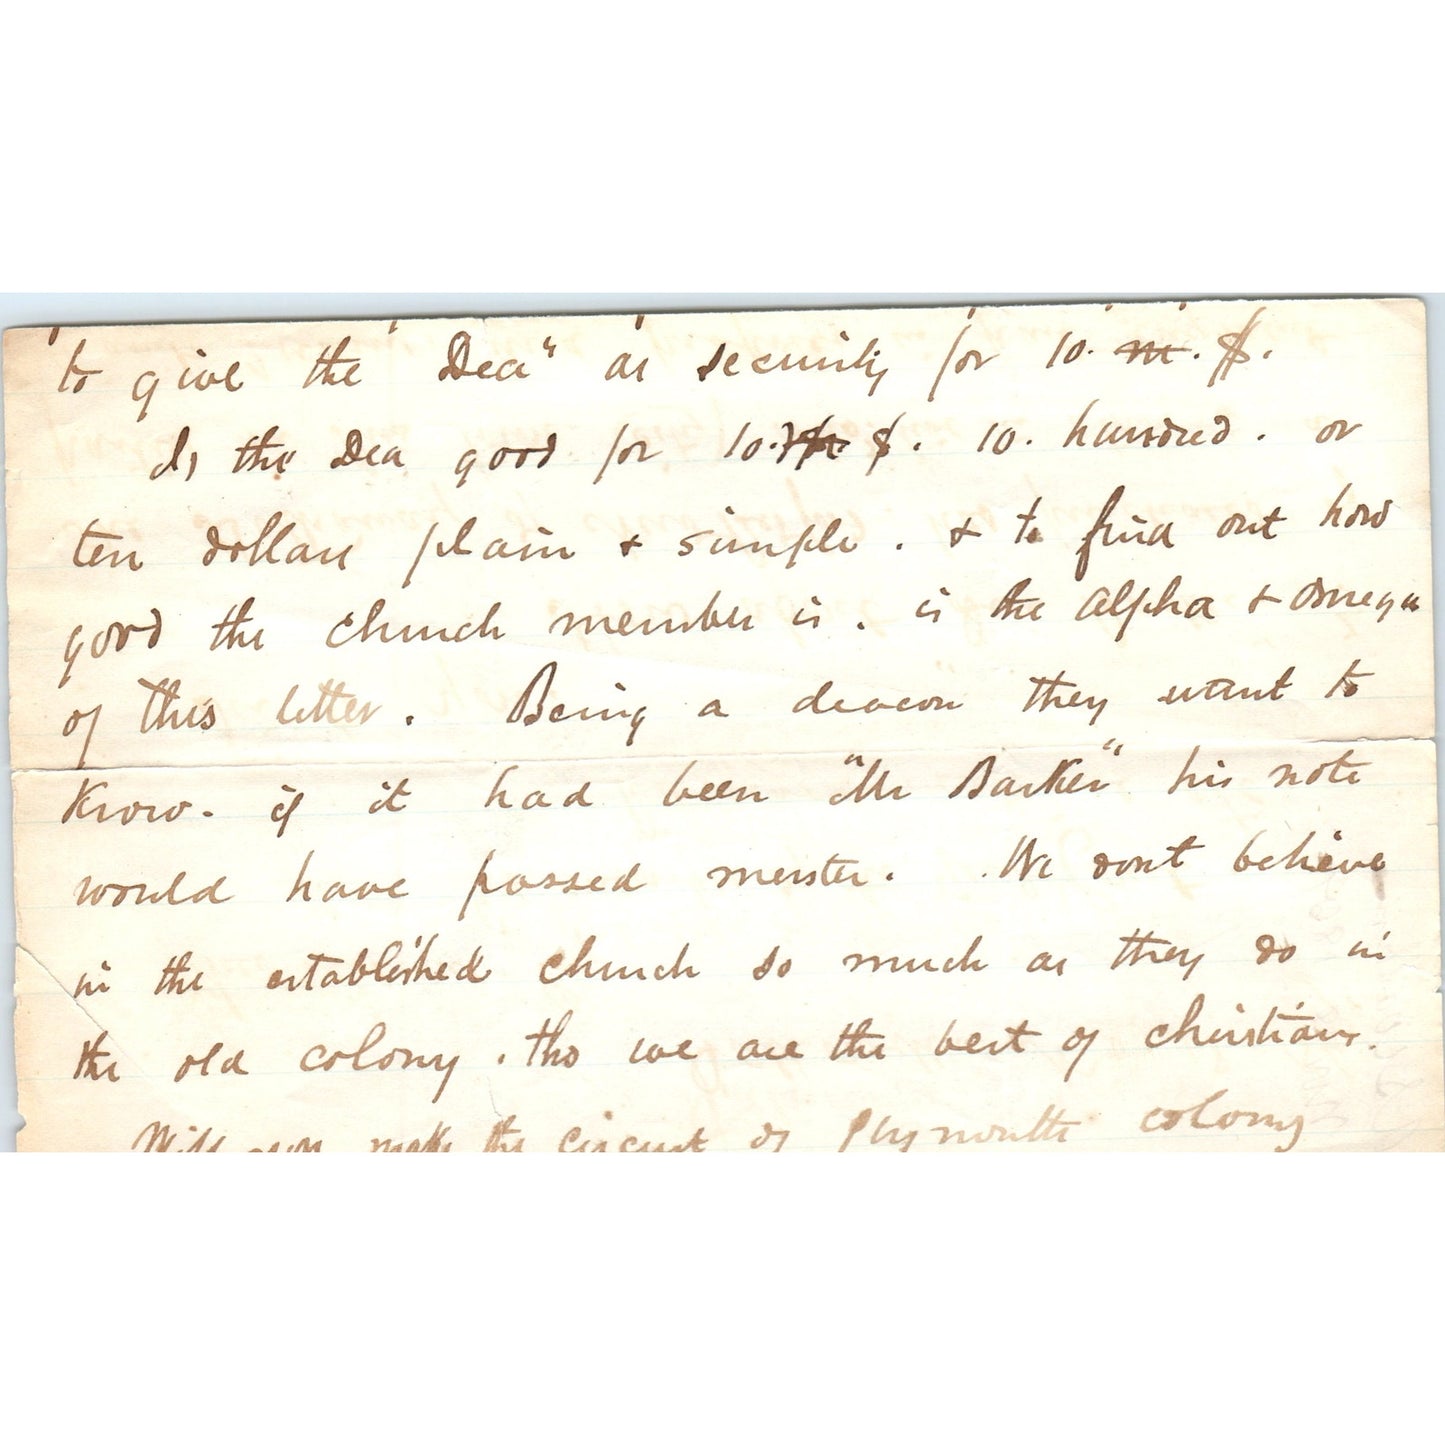 to give the "Dea" as security for 10. m. $.
Is the Dea good for 10. m $. 10. hundred. or
ten dollars plain & simple. & to find out how
good the church member is. is the alpha & omega
of this letter. Being a deacon they want to
know. if it had been "Mr Barker" his note
would have passed muster. We dont believe
in the established church so much as they do in
the old colony. tho we are the best of christians.
Will you make the circuit of Plymouth colony